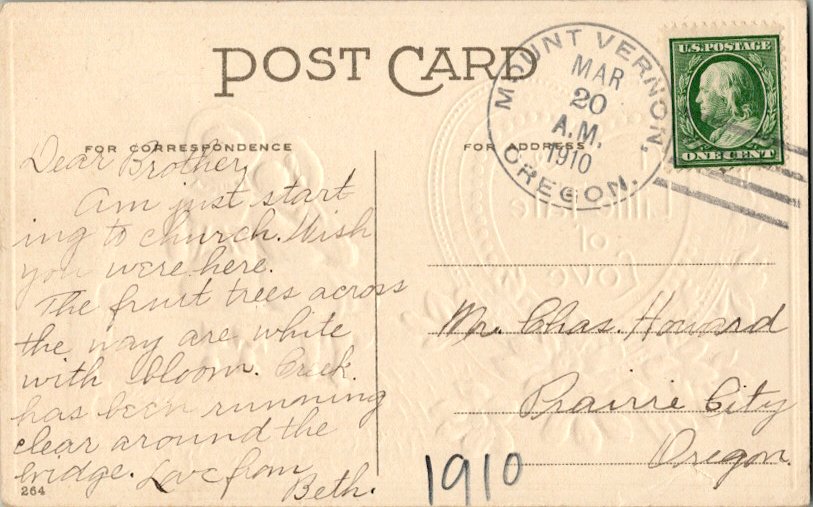 POST CARD
MOUNT VERNON,
MAR
20
A.M.
1910
OREGON.
U.S. POSTAGE
ONE CENT
FOR CORRESPONDENCE
FOR ADDRESS
Dear Brother,
Am just start
ing to church. Wish
you were here.
The fruit trees across
the way are white
with bloom. Creek
has been running
clear around the
bridge. Love from
Beth.
264
Mr. Chas. Howard
Prairie City
Oregon.
1910